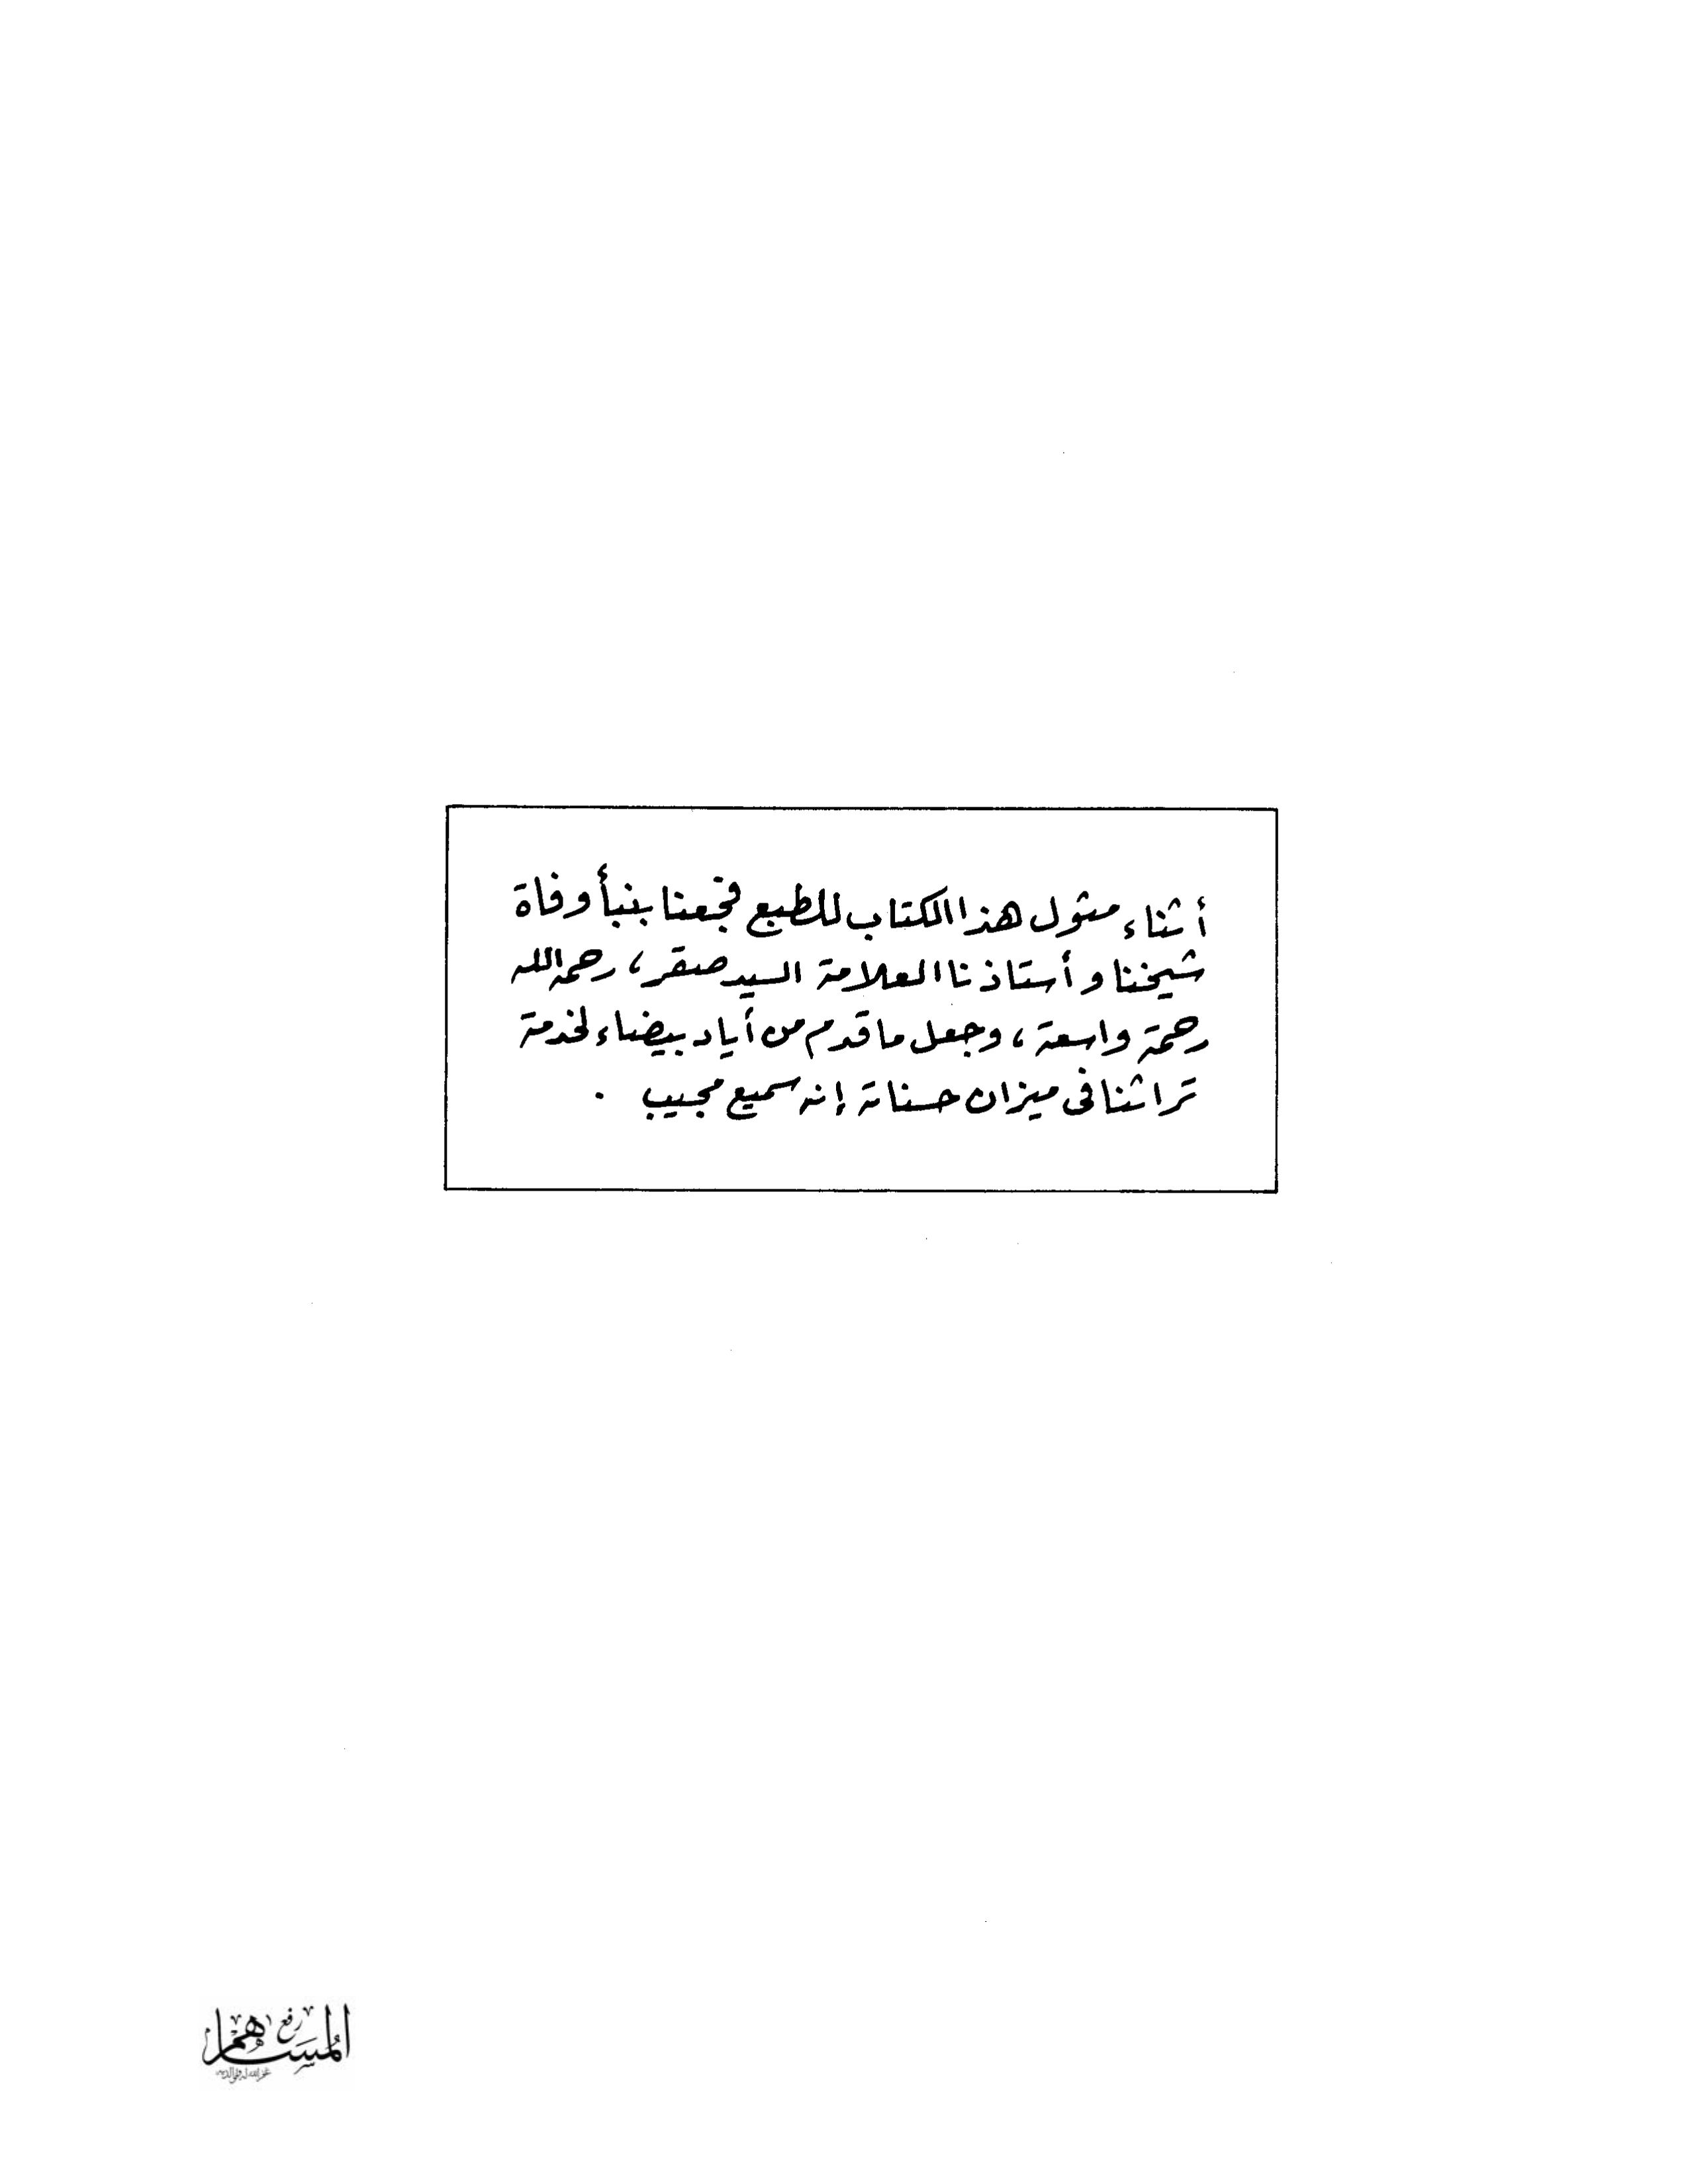 أثناء مثول هذا الكتاب للطبع فجعنا بنبأ وفاة
شيخنا وأستاذنا العلامة السيد صقر، رحمه الله
رحمة واسعة، وجعل ما قدم من أياد بيضاء لخدمة
تراثنا فى ميزان حسناته إنه سميع مجيب .
رفع
المساهم
غفر الله له ولوالديه